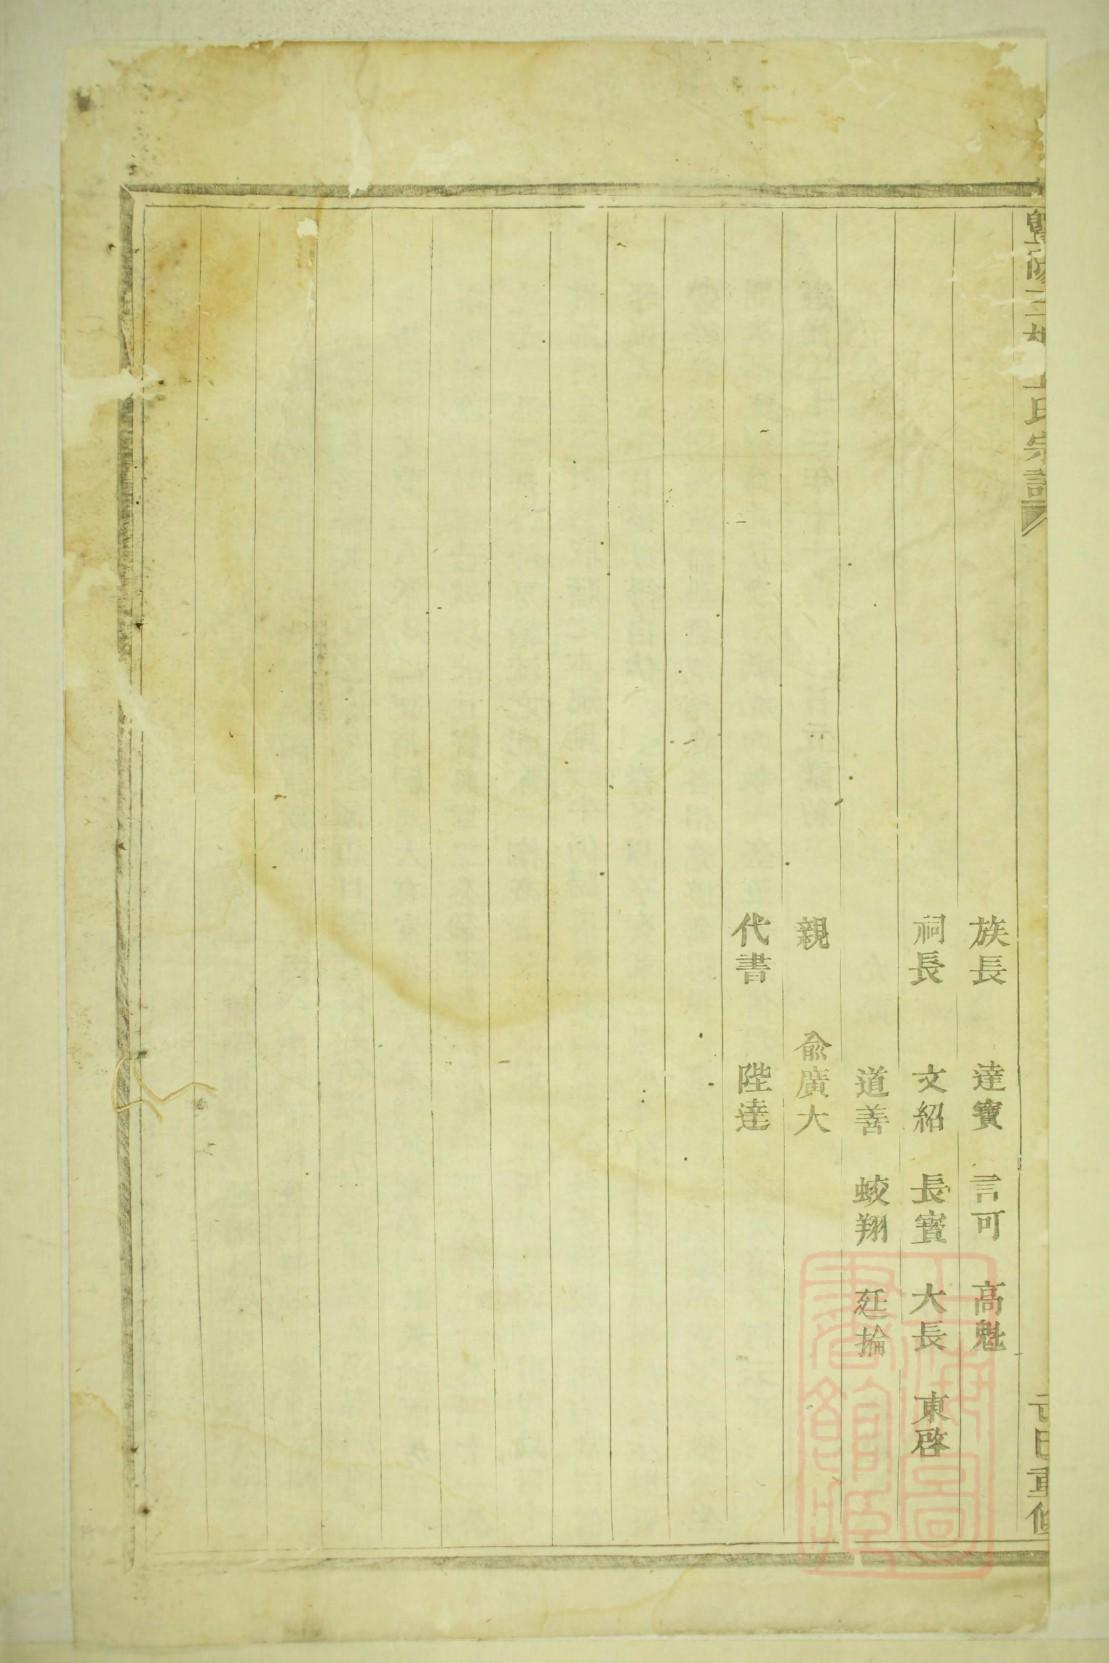 暨陽三
氏宗譜
重修
族長 達寶 言可 高魁
祠長 文紹 長賓 大長 東啓
道善 蛟翔 廷掄
親 俞廣大
代書 陛達